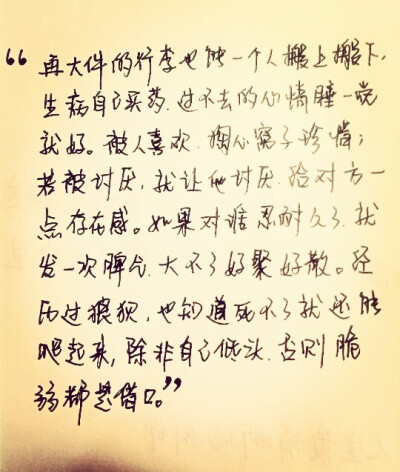 “再大件的行李也能一个人搬上搬下,
生病自己买药.过不去的心情睡一觉
就好。被人喜欢.掏心窝子珍惜;
若被讨厌,就让他讨厌.给对方一
点存在感。如果对谁忍耐久了.就
发一次脾气.大不了好聚好散。经
历过狼狈,也知道死不了就还能
爬起来,除非自己低头.否则脆
弱都是借口。”